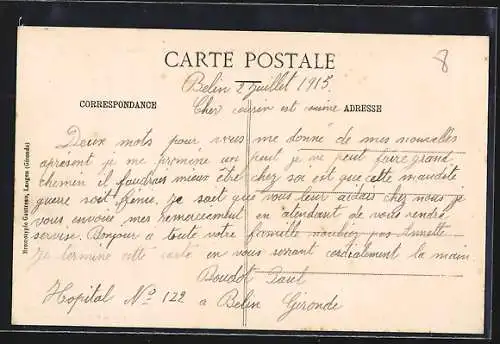 CARTE POSTALE
8
Belin 2 Juillet 1915.
CORRESPONDANCE
Cher cousin est cousine
ADRESSE
Deux mots pour vous me donné de mes nouvelles
apresent je me promène un peut je ne peut faire grand
chemin il faudrais mieux etre chez soi est que cette maudite
guerre soit finie. Je sait que vous leur aidais chez nous je
vous envoie mes remerciement en atendant de vous rendre
servise. Bonjour a toute votre famille noubliez pas Annette
Je termine cette carte en vous serrant cordialement la main
Boudot Paul
Hopital No 122 a Belin Gironde
Bromotypie Gautreau, Langon (Gironde)